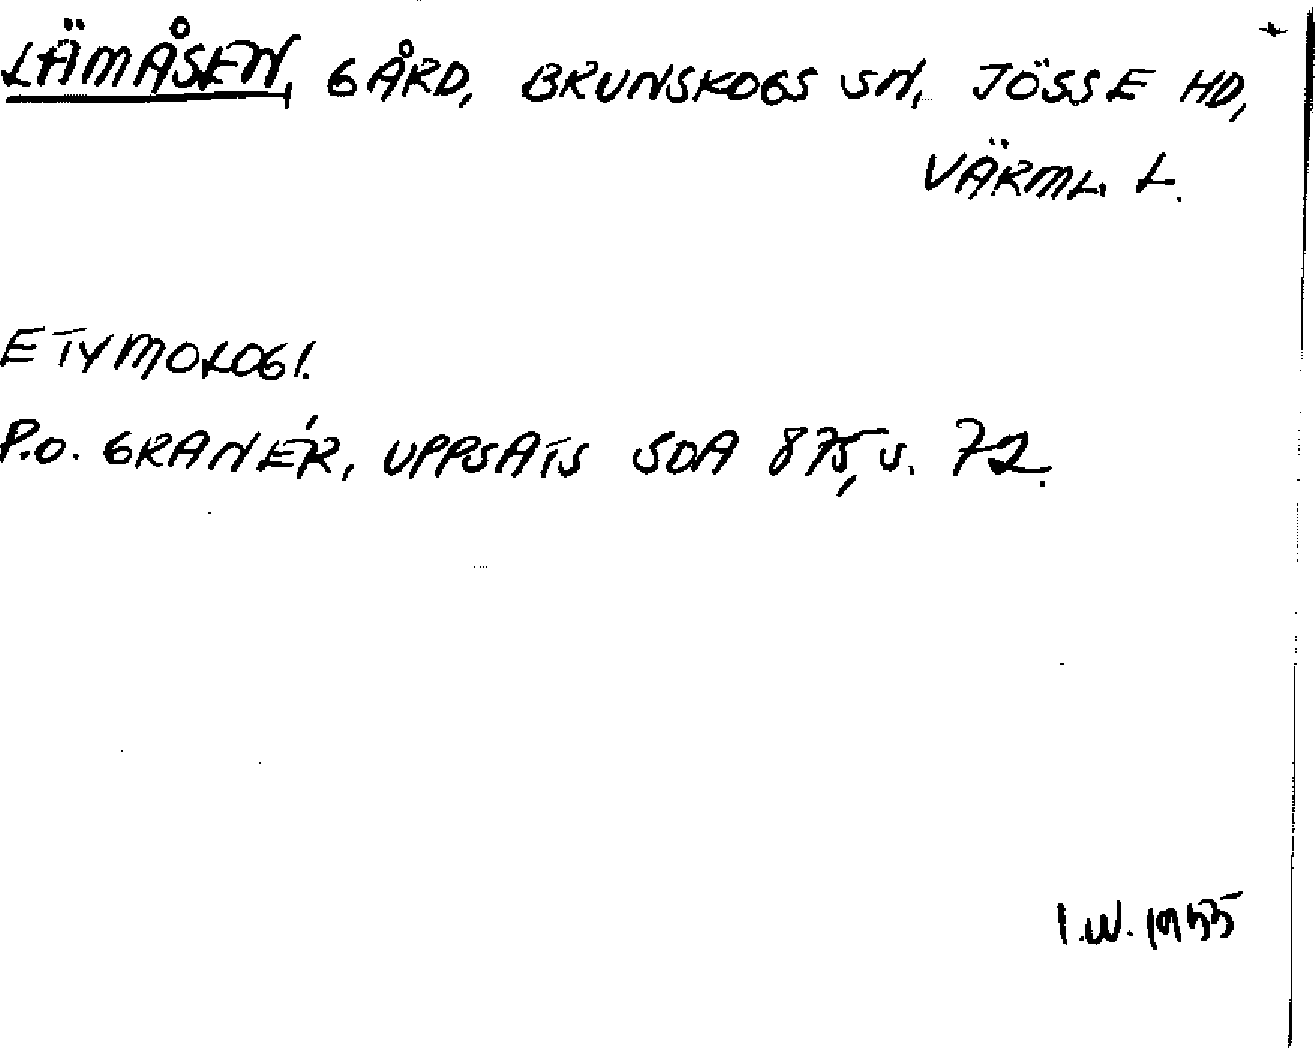 LÄMÅSEN, GÅRD, BRUNSKOGS SN, JÖSSE HD, +
VÄRML. L.
ETYMOLOGI.
P.O. GRANÉR, UPPSATS SOA 875, S. 72.
I.W. 1955